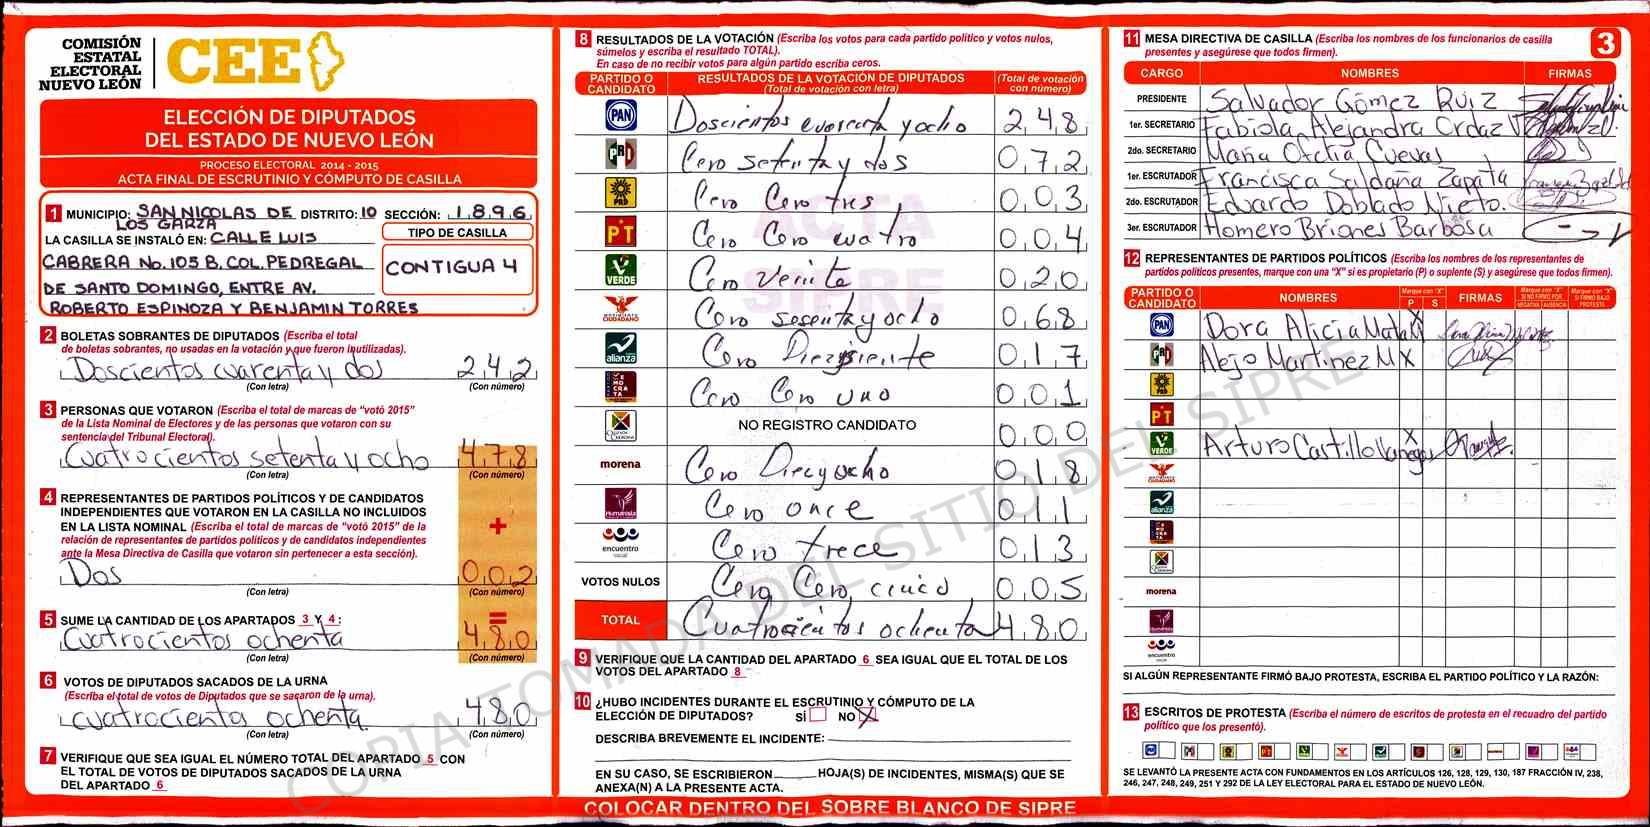 COMISIÓN
ESTATAL
ELECTORAL
NUEVO LEÓN
CEE
ELECCIÓN DE DIPUTADOS
DEL ESTADO DE NUEVO LEÓN
PROCESO ELECTORAL 2014 - 2015
ACTA FINAL DE ESCRUTINIO Y CÓMPUTO DE CASILLA
1 MUNICIPIO: SAN NICOLAS DE LOS GARZA DISTRITO: 10 SECCIÓN: 1896
LA CASILLA SE INSTALÓ EN: CALLE LUIS
CABRERA No. 105 B, COL. PEDREGAL
DE SANTO DOMINGO, ENTRE AV.
ROBERTO ESPINOZA Y BENJAMIN TORRES
TIPO DE CASILLA
CONTIGUA 4
2 BOLETAS SOBRANTES DE DIPUTADOS (Escriba el total
de boletas sobrantes, no usadas en la votación y que fueron inutilizadas).
Doscientos cuarenta y dos 242
(Con letra) (Con número)
3 PERSONAS QUE VOTARON (Escriba el total de marcas de "votó 2015"
de la Lista Nominal de Electores y de las personas que votaron con su
sentencia del Tribunal Electoral).
Cuatrocientos setenta y ocho 478
(Con letra) (Con número)
4 REPRESENTANTES DE PARTIDOS POLÍTICOS Y DE CANDIDATOS
INDEPENDIENTES QUE VOTARON EN LA CASILLA NO INCLUIDOS
EN LA LISTA NOMINAL (Escriba el total de marcas de "votó 2015" de la
relación de representantes de partidos políticos y de candidatos independientes
ante la Mesa Directiva de Casilla que votaron sin pertenecer a esta sección).
+
Dos 002
(Con letra) (Con número)
=
5 SUME LA CANTIDAD DE LOS APARTADOS 3 Y 4:
Cuatrocientos ochenta 480
(Con letra) (Con número)
6 VOTOS DE DIPUTADOS SACADOS DE LA URNA
(Escriba el total de votos de Diputados que se sacaron de la urna).
cuatrocientos ochenta 480
(Con letra) (Con número)
7 VERIFIQUE QUE SEA IGUAL EL NÚMERO TOTAL DEL APARTADO 5 CON
EL TOTAL DE VOTOS DE DIPUTADOS SACADOS DE LA URNA
DEL APARTADO 6
8 RESULTADOS DE LA VOTACIÓN (Escriba los votos para cada partido político y votos nulos,
súmelos y escriba el resultado TOTAL).
En caso de no recibir votos para algún partido escriba ceros.
PARTIDO O CANDIDATO RESULTADOS DE LA VOTACIÓN DE DIPUTADOS (Total de votación con letra) (Total de votación con número)
PAN Doscientos cuarenta y ocho 248
PRD Cero setenta y dos 072
PRD Cero Cero tres 003
PT Cero Cero cuatro 004
VERDE Cero Veinte 020
MOVIMIENTO CIUDADANO Cero sesenta y ocho 068
alianza Cero Diez y siete 017
DEMOCRATA Cero Cero uno 001
NO REGISTRO CANDIDATO 000
morena Cero Diez y ocho 018
Humanista Cero once 011
encuentro social Cero trece 013
VOTOS NULOS Cero Cero cinco 005
TOTAL Cuatrocientos ochenta 480
9 VERIFIQUE QUE LA CANTIDAD DEL APARTADO 6 SEA IGUAL QUE EL TOTAL DE LOS
VOTOS DEL APARTADO 8
10 ¿HUBO INCIDENTES DURANTE EL ESCRUTINIO Y CÓMPUTO DE LA
ELECCIÓN DE DIPUTADOS? SÍ NO X
DESCRIBA BREVEMENTE EL INCIDENTE:
EN SU CASO, SE ESCRIBIERON HOJA(S) DE INCIDENTES, MISMA(S) QUE SE
ANEXA(N) A LA PRESENTE ACTA.
COLOCAR DENTRO DEL SOBRE BLANCO DE SIPRE
ACTA
SIPRE
COPIA TOMADA DEL SITIO DEL SIPRE
11 MESA DIRECTIVA DE CASILLA (Escriba los nombres de los funcionarios de casilla
presentes y asegúrese que todos firmen).
3
CARGO NOMBRES FIRMAS
PRESIDENTE Salvador Gómez Ruiz
1er. SECRETARIO Fabiola Alejandra Ordaz
2do. SECRETARIO María Ofelia Cuevas
1er. ESCRUTADOR Francisca Saldaña Zapata
2do. ESCRUTADOR Eduardo Doblado Nieto.
3er. ESCRUTADOR Homero Briones Barbosa
12 REPRESENTANTES DE PARTIDOS POLÍTICOS (Escriba los nombres de los representantes de
partidos políticos presentes, marque con una "X" si es propietario (P) o suplente (S) y asegúrese que todos firmen).
PARTIDO O CANDIDATO NOMBRES Marque con "X" P S FIRMAS Marque con "X" SI NO FIRMÓ POR: NEGATIVA AUSENCIA Marque con "X" SI FIRMÓ BAJO PROTESTA
PAN Dora Alicia Mata X
PRD Alejo Martinez M X
PRD
PT
VERDE Arturo Castillo X
MOVIMIENTO CIUDADANO
alianza
morena
Humanista
encuentro social
SI ALGÚN REPRESENTANTE FIRMÓ BAJO PROTESTA, ESCRIBA EL PARTIDO POLÍTICO Y LA RAZÓN:
13 ESCRITOS DE PROTESTA (Escriba el número de escritos de protesta en el recuadro del partido
político que los presentó).
SE LEVANTÓ LA PRESENTE ACTA CON FUNDAMENTOS EN LOS ARTÍCULOS 126, 128, 129, 130, 187 FRACCIÓN IV, 238,
246, 247, 248, 249, 251 Y 292 DE LA LEY ELECTORAL PARA EL ESTADO DE NUEVO LEÓN.